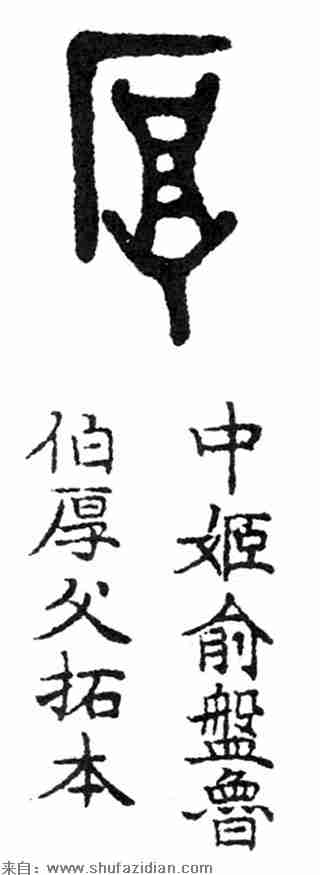 厚
中姬俞盤魯
伯厚父拓本
来自：www.shufazidian.com